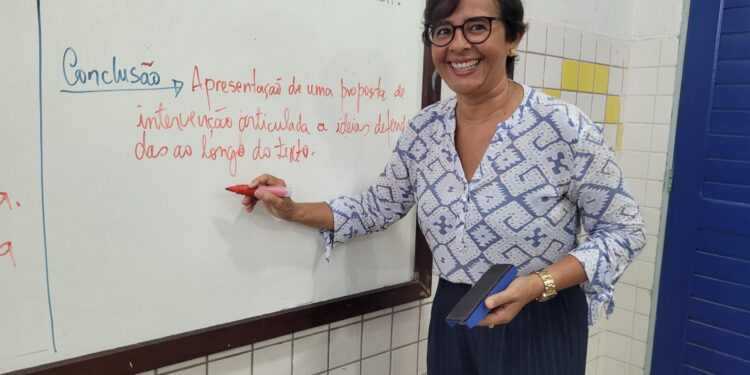 Conclusão → Apresentação de uma proposta de
intervenção articulada a ideias defen
das ao longo do texto.
a.
a